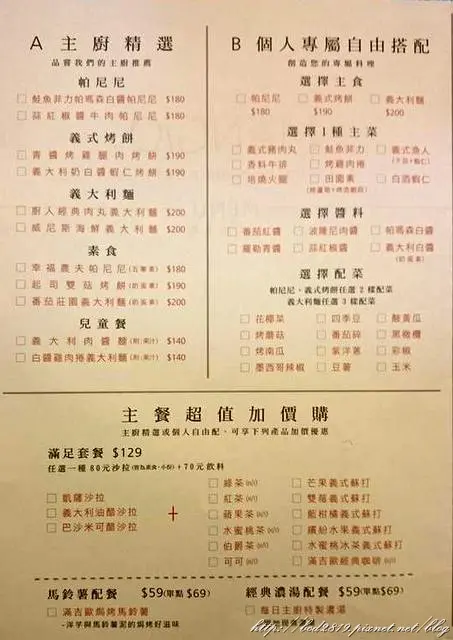 A 主廚精選
品嘗我們的主廚推薦
帕尼尼
鮭魚菲力帕瑪森白醬帕尼尼 $180
蒜紅椒醬牛肉帕尼尼 $180
義式烤餅
青醬烤雞腿肉烤餅 $190
義大利奶白醬蝦仁烤餅 $190
義大利麵
廚人經典肉丸義大利麵 $200
威尼斯海鮮義大利麵 $200
素食
幸福農夫帕尼尼(五葷素) $180
起司雙菇烤餅(奶蛋素) $190
番茄莊園義大利麵(奶蛋素) $200
兒童餐
義大利肉醬麵(附:果汁) $140
白醬雞肉捲義大利麵(附:果汁) $140
B 個人專屬自由搭配
創造您的專屬料理
選擇主食
帕尼尼 義式烤餅 義大利麵
$180 $190 $200
選擇1種主菜
義式豬肉丸 鮭魚菲力 義式漁人
香料牛排 烤雞肉捲
培燒火腿 田園素 白酒蝦仁
選擇醬料
番茄紅醬 波隆尼肉醬 帕瑪森白醬
羅勒青醬 蒜紅椒醬 義大利白醬
(奶蛋素)
選擇配菜
帕尼尼、義式烤餅任選2樣配菜
義大利麵任選3樣配菜
花椰菜 四季豆 酸黃瓜
烤蘑菇 番茄碎 黑橄欖
烤南瓜 紫洋蔥 彩椒
墨西哥辣椒 豆薯 玉米
主餐超值加價購
主廚精選或個人自由配，可享下列產品加價優惠
滿足套餐 $129
任選一種80元沙拉(皆為素食,小份)+70元飲料
凱薩沙拉
義大利油醋沙拉
巴沙米可醋沙拉
+
綠茶(H/I)
紅茶(H/I)
蘋果茶(H/I)
水蜜桃茶(H/I)
伯爵茶(H/I)
可可(H/I)
芒果義式蘇打
雙莓義式蘇打
藍柑橘義式蘇打
繽紛水果義式蘇打
水蜜桃冰茶義式蘇打
滿吉歐經典咖啡(H/I)
馬鈴薯配餐 $59(單點$69)
滿吉歐焗烤馬鈴薯
-洋芋與馬鈴薯泥的焗烤好滋味
經典濃湯配餐 $59(單點$69)
每日主廚特製濃湯
http://bod2819.pixnet.net/blog